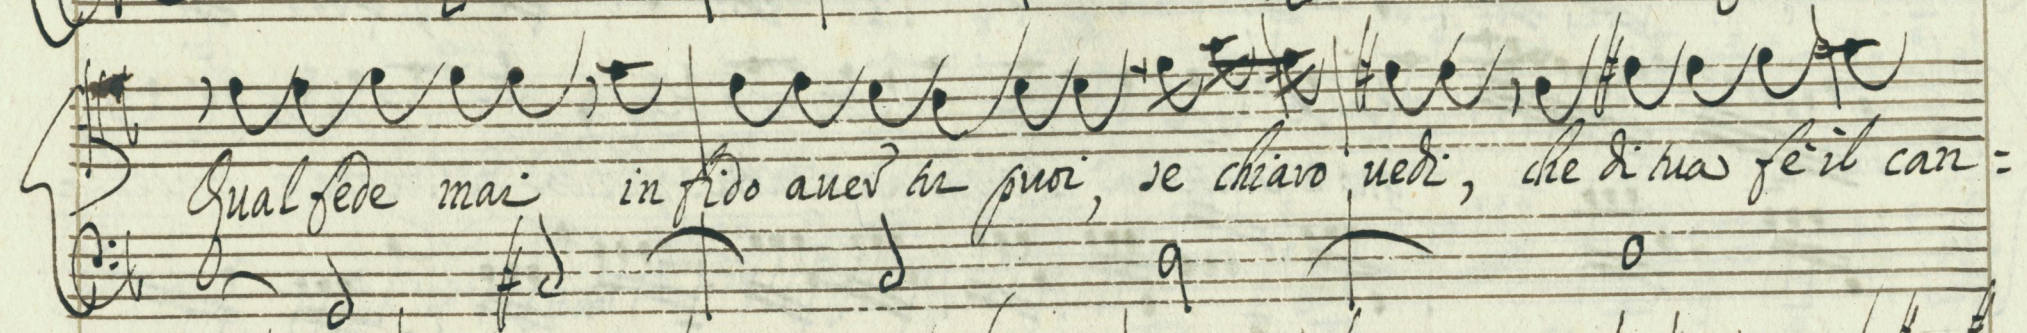 Qual fede mai infido aver tu puoi, se chiaro vedi, che di tua fè il can=